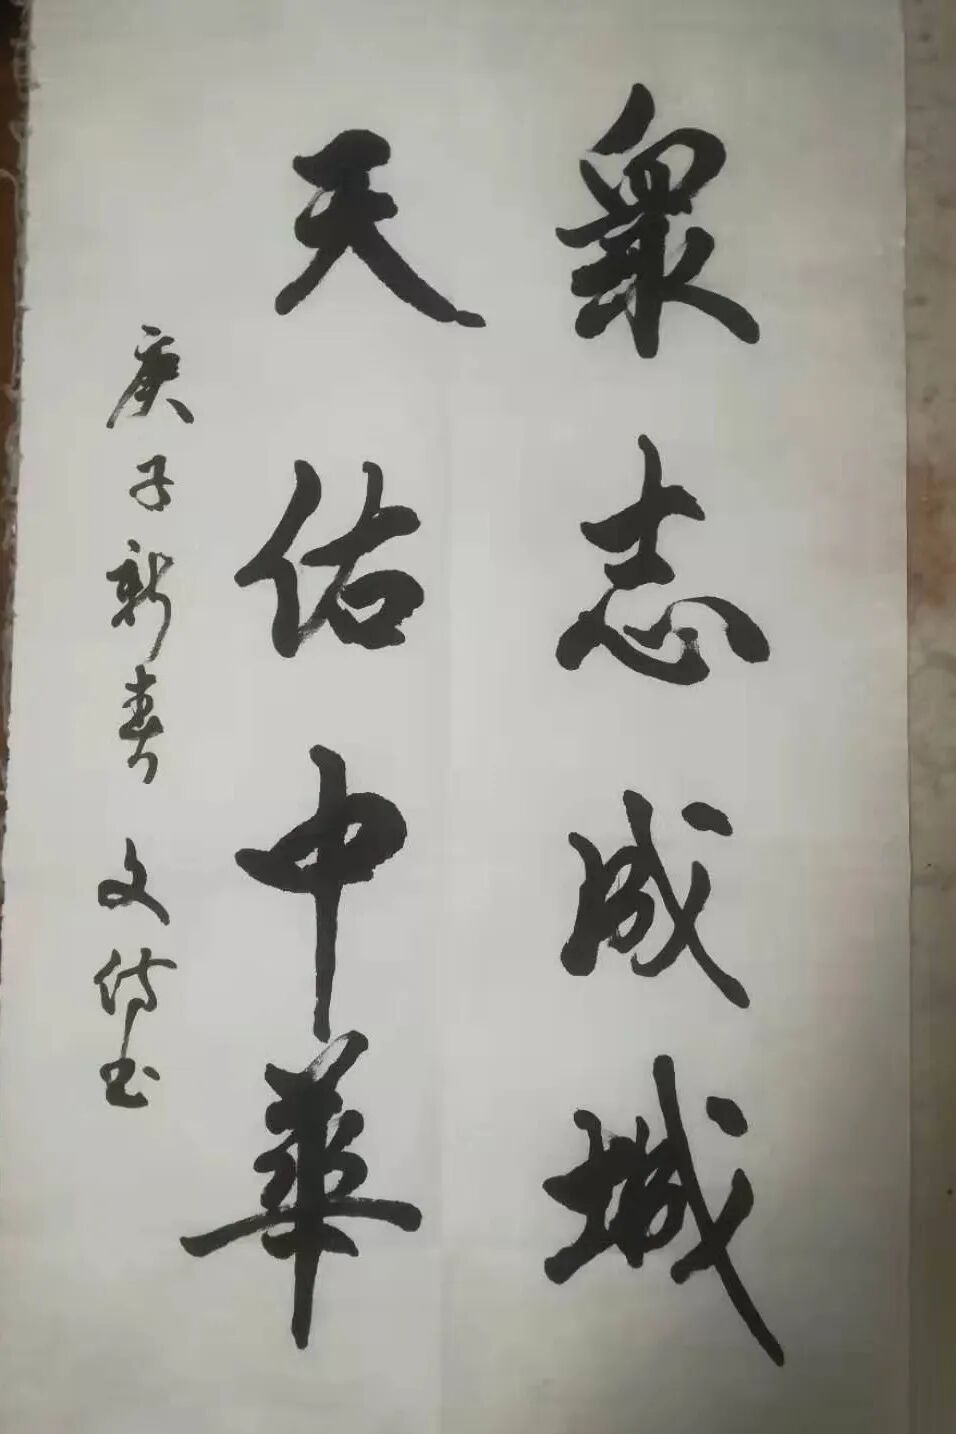 眾志成城
天佑中華
庚子新春 文德玉